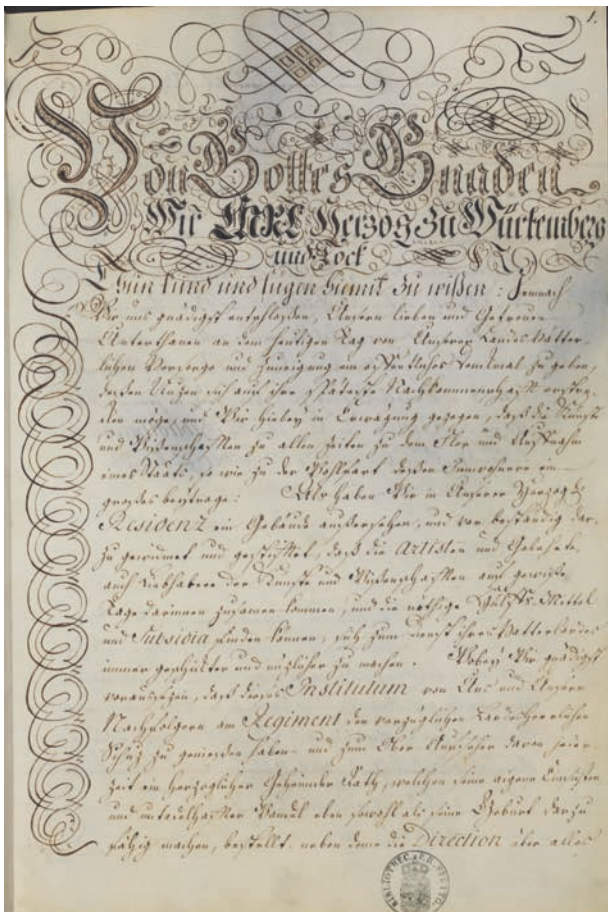 1.
Von Gottes Gnaden
Wir CARL Herzog zu Würtemberg
und Teck
Thun kund und fügen hiemit zu wißen: Demnach
Wir uns gnädigst entschloßen, Unsern lieben und Getreuen
Unterthanen an dem heutigen Tag von Unserer Landes Vätter-
lichen Vorsorge und Zuneigung ein öffentliches Denkmal zu geben,
deßen Nuzen sich auf ihre späteste Nachkommenschafft erstre-
ken möge, und Wir hiebey in Erwägung gezogen, daß die Künste
und Wißenschafften zu allen Zeiten zu dem Flor und Aufnahm
eines Staats, so wie zu der Wohlfart deßen Innwohnere ein
großes beytrage: Als haben Wir in Unserer Herzogl.
Residenz ein Gebäude außersehen, und vor beständig dar-
zu gewidmet und gestifftet, daß die Artisten und Gelehrte,
auch Liebhabere der Künste und Wißenschafften auf gewiße
Tage darinnen zusamen kommen, und die nöthige Hülfs-Mittel
und Subsidia finden können, sich zum Dienst ihres Vatterlandes
immer geschikter und nuzlicher zu machen. Wobey Wir gnädigst
voraussezen, daß dieses Institutum von Uns und Unsern
Nachfolgern am Regiment den vorzüglichen Landesherrlichen
Schuz zu genießen haben und zum Ober Aufseher davon jeder-
zeit ein herzoglicher Geheimder Rath, welchen seine eigene Einsichten
und untadelhafften Wandel eben sowohl als seine Geburt darzu
fähig machen, bestellt neben deme die Direction über alles